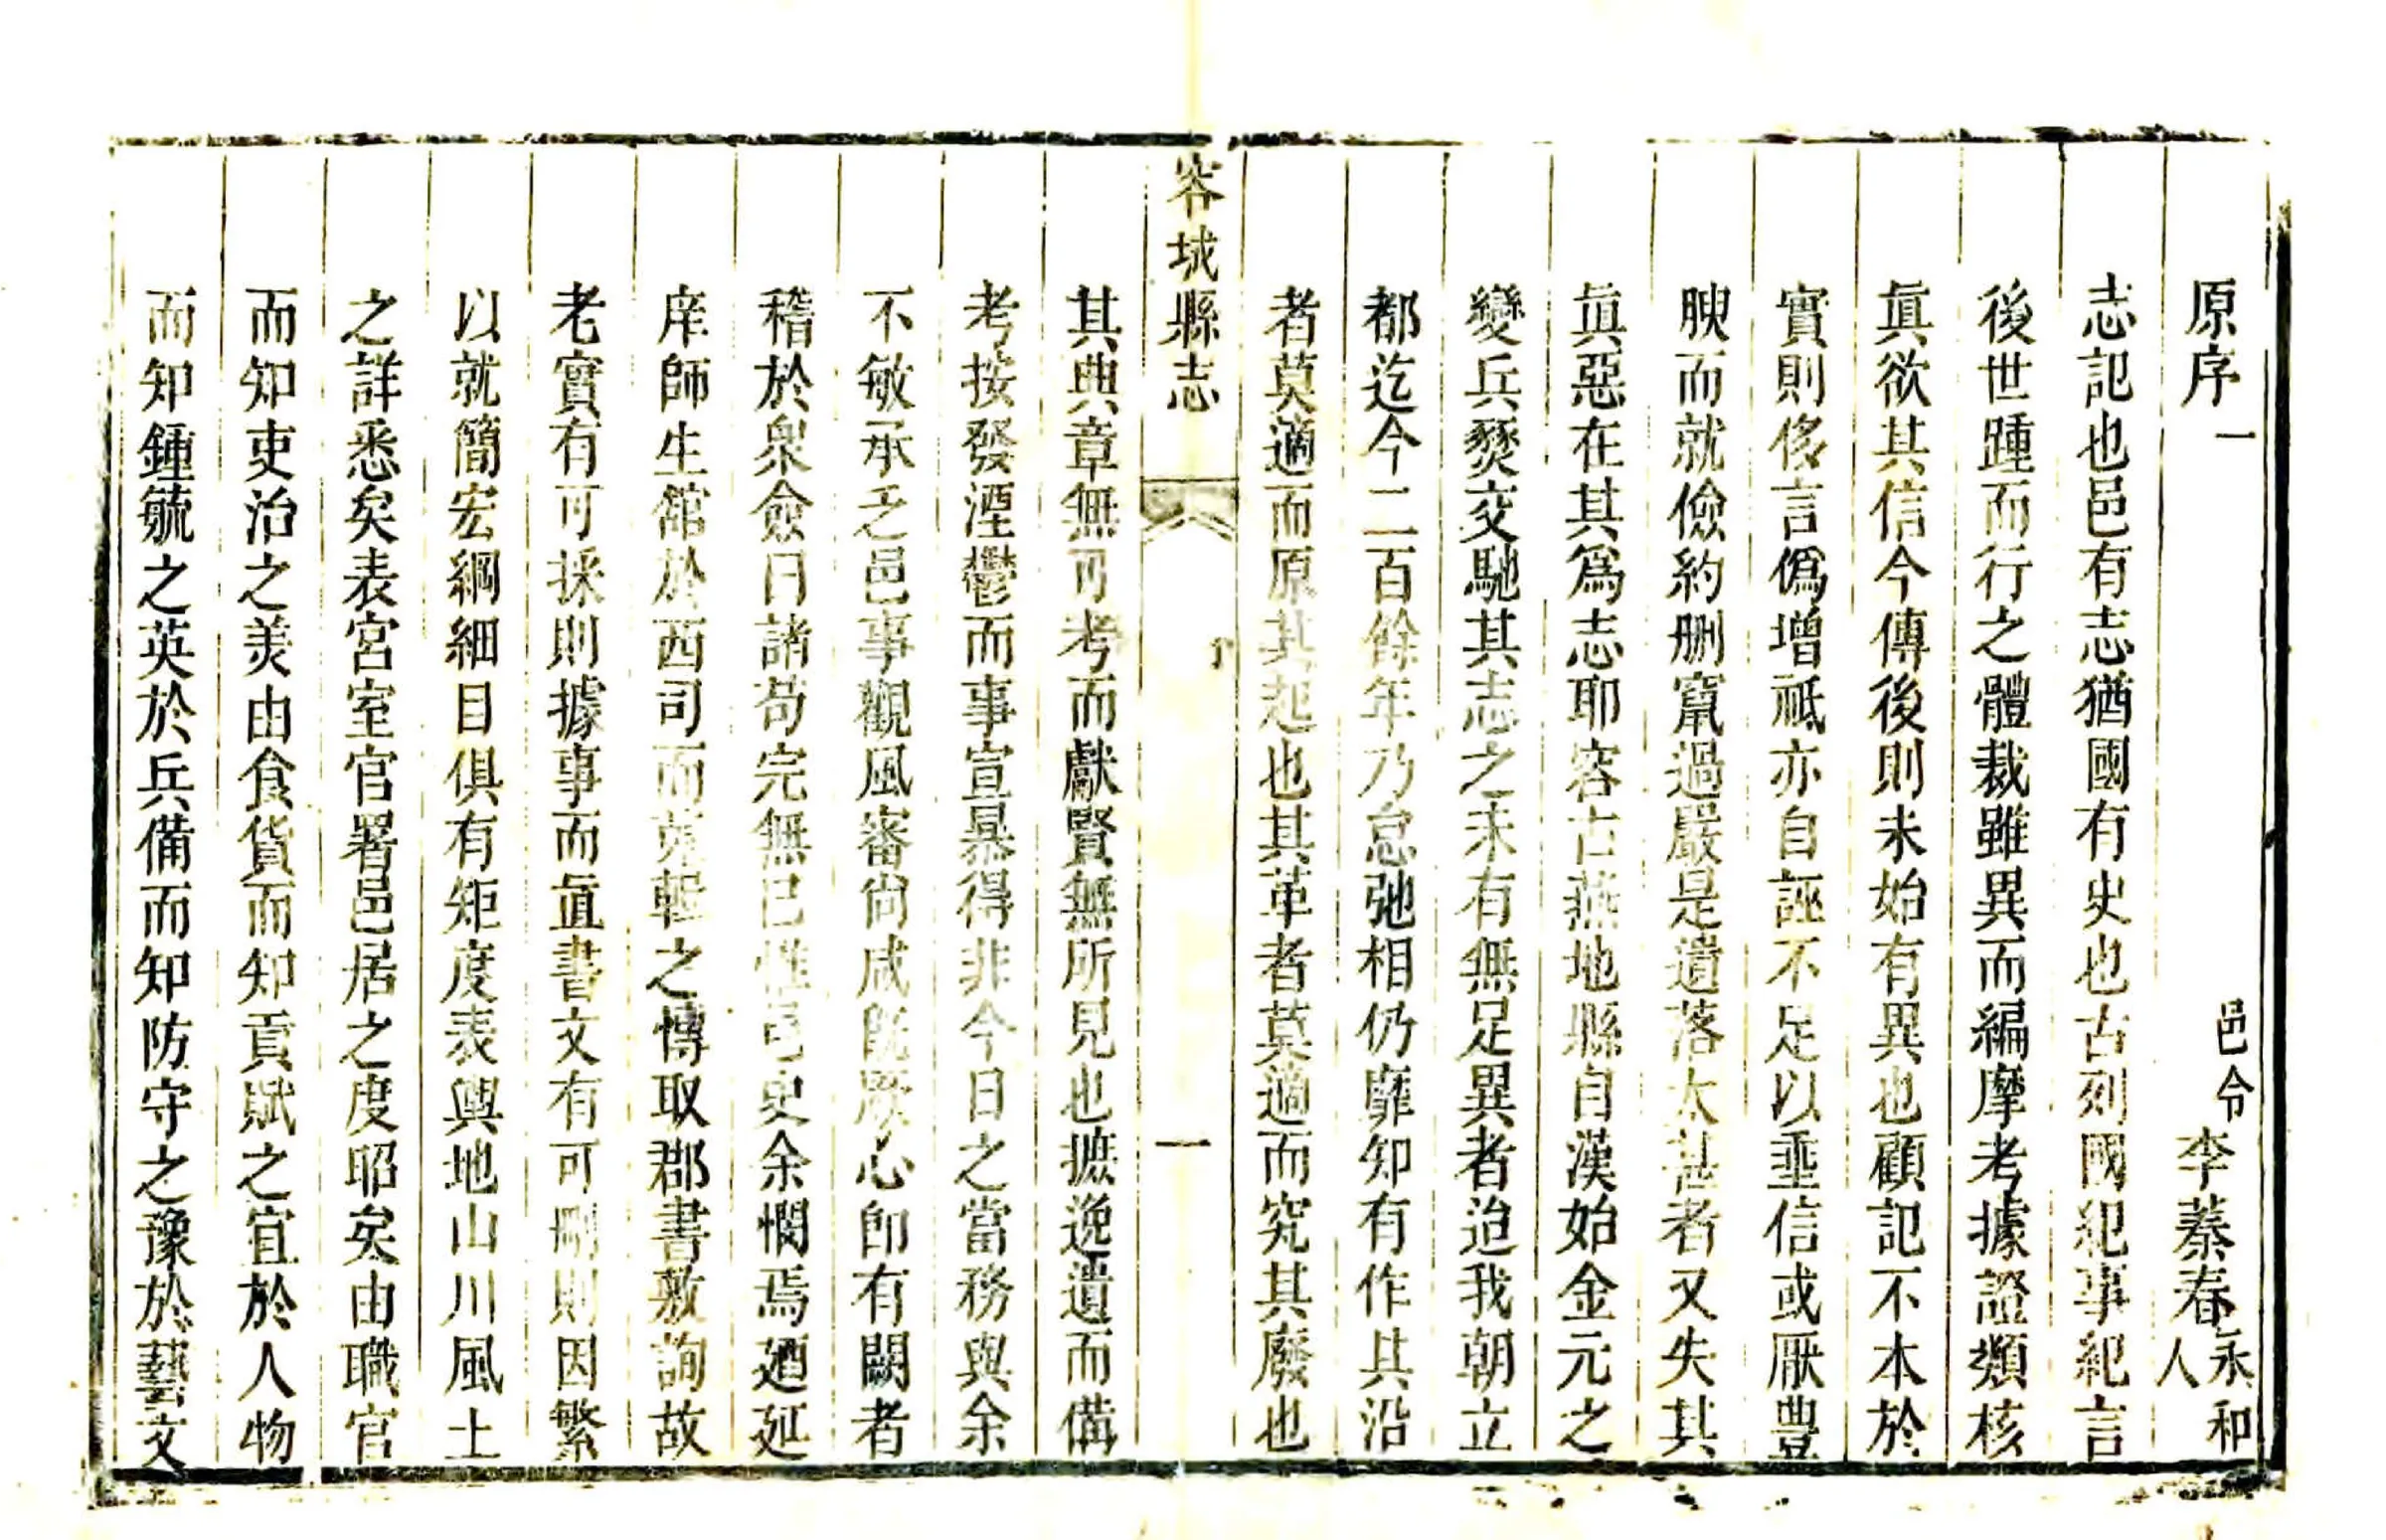 原序一 邑令李蓁春永和人
志記也邑有志猶國有史也古列國紀事紀言
後世踵而行之體裁雖異而編摩考據證類核
眞欲其信今傳後則未始有異也顧記不本於
實則侈言僞增祗亦自誣不足以垂信或厭豐
腴而就儉約刪竄過嚴是遺落太甚者又失其
眞惡在其爲志耶容古燕地縣自漢始金元之
變兵燹交馳其志之未有無足異者迨我朝立
都迄今二百餘年乃怠弛相仍靡知有作其沿
者莫適而原其起也其革者莫適而究其廢也
容城縣志
一
其典章無可考而獻賢無所見也摭逸遺而備
考按發湮鬱而事宣暴得非今日之當務與余
不敏承乏邑事觀風審尚咸旣厥心卽有闕者
稽於衆僉曰諸苟完無已惟司史余憫焉廼延
庠師生舘於西司而蒐輯之愽取郡書敷詢故
老實有可採則據事而直書文有可刪則因繁
以就簡宏綱細目俱有矩度表輿地山川風土
之詳悉矣表宮室官署邑居之度昭矣由職官
而知吏治之美由食貨而知貢賦之宜於人物
而知鍾毓之英於兵備而知防守之豫於藝文